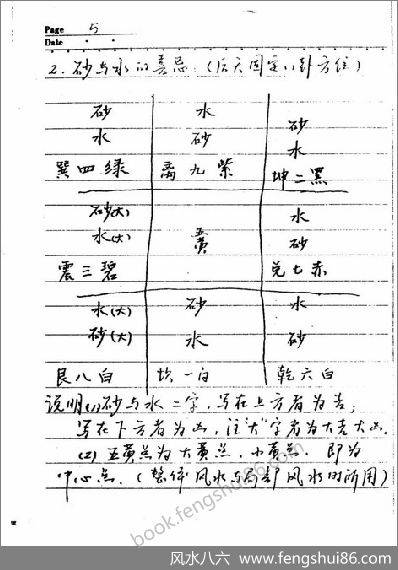 Page 5
Date
2. 砂与水的喜忌(后天固定八卦方位)
砂 水 砂
水 砂 水
巽四绿 离九紫 坤二黑
砂(大) 水
水(大) 五黄 砂
震三碧 兑七赤
水(大) 砂 水
砂(大) 水 砂
艮八白 坎一白 乾六白
说明(1)砂与水二字,写在上方者为吉,
写在下方者为凶,注大字者为大吉大凶.
(2) 五黄点为大黄点,小黄点. 即为
中心点.(整体风水与局部风水时所用)
book.fengshui86.com
风水八六 www.fengshui86.com